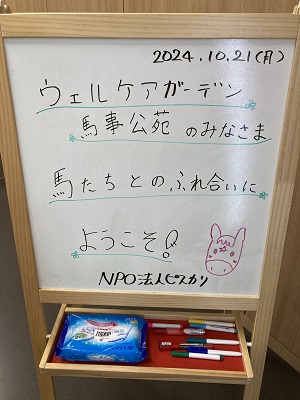 2024.10.21(月)
ウェルケアガーデン
馬事公苑 のみなさま
馬たちとのふれ合いに
ようこそ!
NPO法人ピスカリ